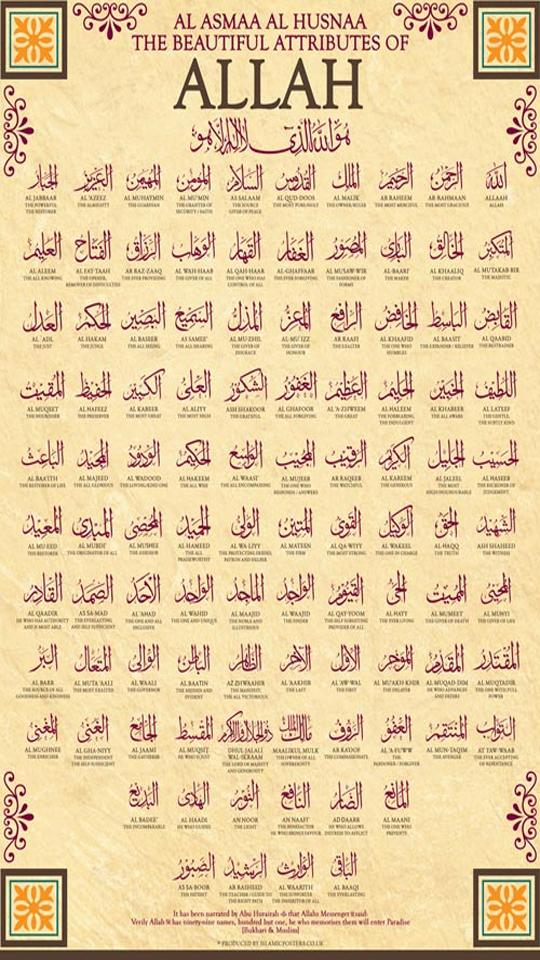 AL ASMAA AL HUSNAA
THE BEAUTIFUL ATTRIBUTES OF
ALLAH
هو الله الذي لا اله الا هو
الله
ALLAAH
ALLAH
الرحمن
AR RAHMAAN
THE MOST GRACIOUS
الرحيم
AR RAHEEM
THE MOST MERCIFUL
الملك
AL MALIK
القدوس
AL QUD-DOOS
THE MOST PURE/HOLY
السلام
AS SALAAM
THE SOURCE
GIVER OF PEACE
المؤمن
AL MU'MIN
THE GRANTER OF
SECURITY / FAITH
المهيمن
AL MUHAYMIN
THE GUARDIAN
العزيز
AL 'AZEEZ
THE ALMIGHTY
الجبار
AL JABBAAR
THE POWERFUL
THE RESTORER
المتكبر
AL MUTAKAB-BIR
THE MAJESTIC
الخالق
AL KHAALIQ
THE CREATOR
البارئ
AL-BAARI'
THE MAKER
المصور
AL MUSAW-WIR
THE FASHIONER OF
FORMS
الغفار
AL-GHAFFAAR
THE EVER FORGIVING
القهار
AL QAH-HAAR
THE ONE WHO HAS
CONTROL OF ALL
الوهاب
AL WAH-HAAB
THE GIVER OF ALL
الرزاق
AR RAZ-ZAAQ
THE EVER PROVIDING
الفتاح
AL FAT-TAAH
THE OPENER,
REMOVER OF DIFFICULTIES
العليم
AL ALEEM
THE ALL KNOWING
القابض
AL QAABID
THE RESTRAINER
الباسط
AL BAASIT
THE EXPANDER / RELIEVER
الخافض
AL KHAAFID
THE ONE WHO
HUMBLES
الرافع
AR RAAFI
THE EXALTER
المعز
AL-MU'IZZ
THE GIVER OF
HONOUR
المذل
AL MU-ZHIL
THE GIVER OF
DISGRACE
السميع
AS SAMEE'
THE ALL HEARING
البصير
AL BASEER
THE ALL SEEING
الحكم
AL HAKAM
THE JUDGE
العدل
AL 'ADL
THE JUST
اللطيف
AL LATEEF
THE GENTLE,
THE SUBTLY KIND
الخبير
AL KHABEER
THE ALL AWARE
الحليم
AL HALEEM
THE FORBEARING,
THE INDULGENT
العظيم
AL 'A-ZHWEEM
THE GREAT
الغفور
AL GHAFOOR
THE ALL FORGIVING
الشكور
ASH SHAKOOR
THE GRATEFUL
العلي
AL ALIYY
THE MOST HIGH
الكبير
AL KABEER
THE MOST GREAT
الحفيظ
AL HAFEEZ
THE PRESERVER
المقيت
AL MUQEET
THE NOURISHER
الحسيب
AL HASEEB
THE RECKONER OF
JUDGEMENT.
الجليل
AL JALEEL
THE MOST
HIGH/HONOURABLE
الكريم
AL KAREEM
THE GENEROUS
الرقيب
AR RAQEEB
THE WATCHFUL
المجيب
AL MUJEEB
THE ONE WHO
RESPONDS / ANSWERS
الواسع
AL WAASI'
THE ALL ENCOMPASSING
الحكيم
AL HAKEEM
THE ALL WISE
الودود
AL WADOOD
THE LOVING/KIND ONE
المجيد
AL MAJEED
THE ALL GLORIOUS
الباعث
AL BAA'ITH
THE RESTORER OF LIFE
الشهيد
ASH SHAHEED
THE WITNESS
الحق
AL-HAQQ
THE TRUTH
الوكيل
AL WAKEEL
THE ONE IN CHARGE
القوي
AL QA-WIYY
THE MOST STRONG
المتين
AL MATEEN
THE FIRM
الولي
AL WA-LIYY
THE PROTECTING FRIEND,
PATRON AND HELPER
الحميد
AL HAMEED
THE ALL
PRAISEWORTHY
المحصي
AL MUHSEE
المبدئ
AL MUBDI'
THE ORIGINATOR OF ALL
المعيد
AL MU-EED
THE RESTORER
المحيي
AL MUHYI
THE GIVER OF LIFE
المميت
AL MUMEET
THE GIVER OF DEATH
الحي
AL HAYY
THE EVER LIVING
القيوم
AL QAY-YOOM
THE SELF SUBSISTING
PROVIDER OF ALL
الواجد
AL WAAJID
THE FINDER
الماجد
AL MAAJID
THE NOBLE AND
ILLUSTRIOUS
الواحد
AL WAHID
THE ONE AND UNIQUE
الاحد
AL 'AHAD
THE ONE AND ALL
INCLUSIVE
الصمد
AS SA-MAD
THE EVERLASTING
AND SELF SUFFICIENT
القادر
AL QAADIR
HE WHO HAS AUTHORITY
AND IS MOST ABLE
المقتدر
AL MUQTADIR
THE ONE WITH FULL
POWER
المقدم
AL MUQAD-DIM
HE WHO ADVANCES
المؤخر
AL MU'AKH-KHIR
THE DELAYER
الاول
AL 'AW-WAL
THE FIRST
الاخر
AL 'AAKHIR
THE LAST
الظاهر
AZ ZHWAAHIR
THE MANIFEST,
THE ALL VICTORIOUS
الباطن
AL BAATIN
THE HIDDEN AND
EVIDENT
الوالي
AL WAALI
THE GOVERNOR
المتعال
AL MUTA 'AALI
THE MOST EXALTED
البر
AL BARR
THE SOURCE OF ALL
GOODNESS AND KINDNESS
التواب
AT TAW-WAAB
THE EVER ACCEPTING
OF REPENTANCE
المنتقم
AL MUN-TAQIM
THE AVENGER
العفو
AL 'A-FUWW
THE
PARDONER / FORGIVER
الرؤوف
AR RA'OOF
THE COMPASSIONATE
مالك الملك
MAALIKUL MULK
THE OWNER OF ALL
SOVEREIGNTY
ذو الجلال والاكرام
DHUL-JALALI
WAL-IKRAAM
THE LORD OF MAJESTY
AND GENEROSITY
المقسط
AL MUQSIT
HE WHO IS JUST
الجامع
AL JAAMI
THE GATHERER
الغني
AL GHA-NIYY
THE INDEPENDENT
THE SELF-SUFFICIENT
المغني
AL MUGHNEE
THE ENRICHER
المانع
AL MAANI
THE ONE WHO
PREVENTS
الضار
AD DAARR
HE WHO ALLOWS
DISTRESS TO AFFLICT
النافع
AN NAAFI'
THE BENEFACTOR
HE WHO BRINGS FAVOUR.
النور
AN NOOR
THE LIGHT
الهادي
AL HAADI
HE WHO GUIDES
البديع
AL BADEE'
THE INCOMPARABLE
الباقي
AL BAAQI
THE EVERLASTING
الوارث
AL WAARITH
THE SUPPORTER
THE INHERITOR OF ALL
الرشيد
AR RASHEED
THE TEACHER / GUIDE TO
THE RIGHT PATH
الصبور
AS SA-BOOR
THE PATIENT
It has been narrated by Abu Hurairah that Allahs Messenger said:
Verily Allah has ninety-nine names, hundred but one, he who memorises them will enter Paradise
[Bukhari & Muslim]
* PRODUCED BY ISLAMICPOSTERS.CO.UK